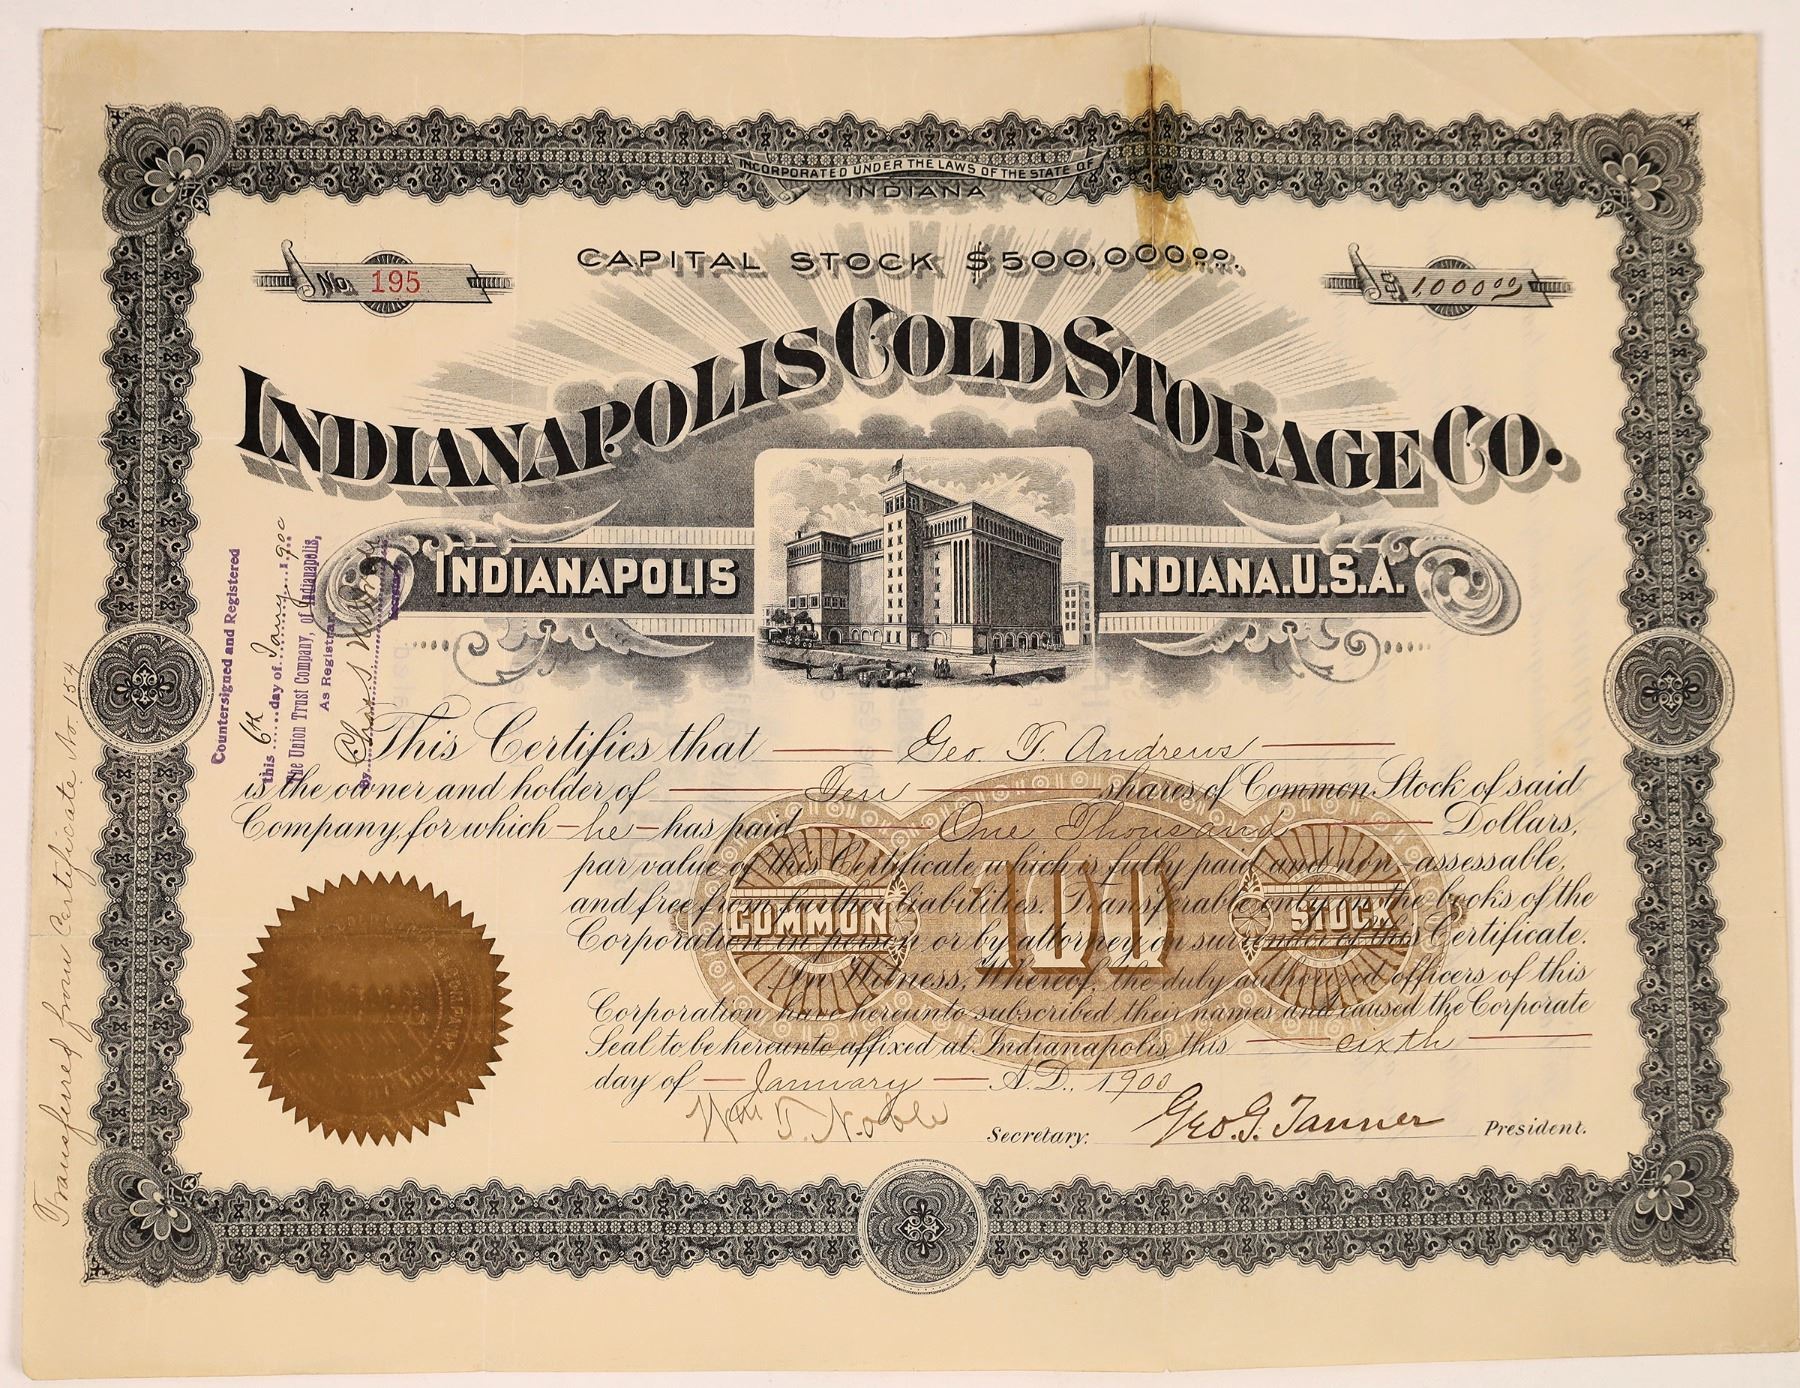 INCORPORATED UNDER THE LAWS OF THE STATE OF
INDIANA
CAPITAL STOCK $500,000.00.
No. 195
$ 1,000.00
INDIANAPOLIS COLD STORAGE CO.
INDIANAPOLIS
INDIANA. U.S.A.
Countersigned and Registered
this 6th day of Jany 1900
The Union Trust Company, of Indianapolis,
As Registrar
by
This Certifies that Geo. T. Andrews
is the owner and holder of Ten shares of Common Stock of said
Company, for which he has paid One Thousand Dollars,
par value of this Certificate which is fully paid and non-assessable,
and free from further liabilities. Transferable only on the books of the
Corporation in person or by attorney on surrender of this Certificate.
In Witness, Whereof, the duly authorized officers of this
Corporation have hereunto subscribed their names and caused the Corporate
Seal to be hereunto affixed at Indianapolis, this sixth
day of January A.D., 1900
COMMON 100 STOCK
Wm T. Noble Secretary. Geo. G. Tanner President.
Transferred from Certificate No. 154